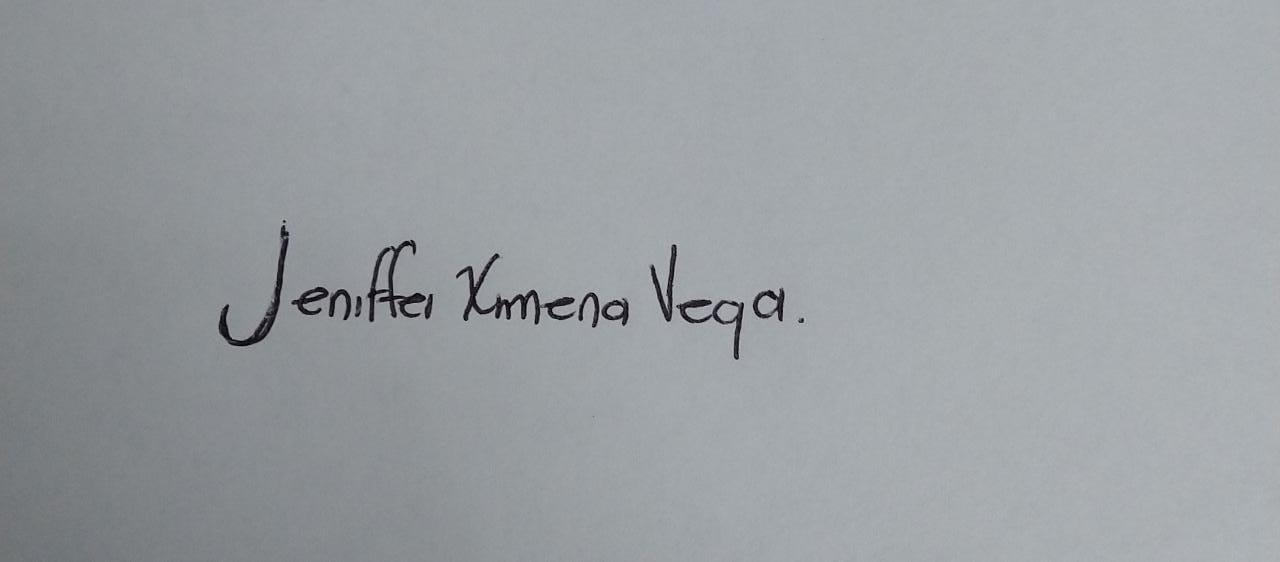 Jeniffer Ximena Vega.